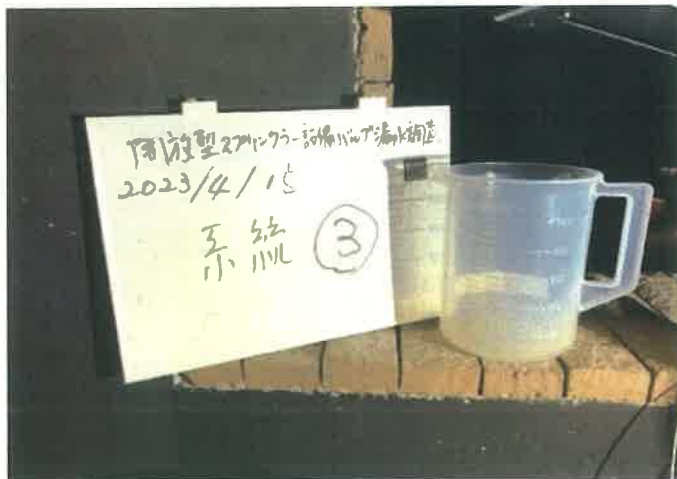 開放型スプリンクラー設備バルブ漏水調査
2023/4/15
系統 ③